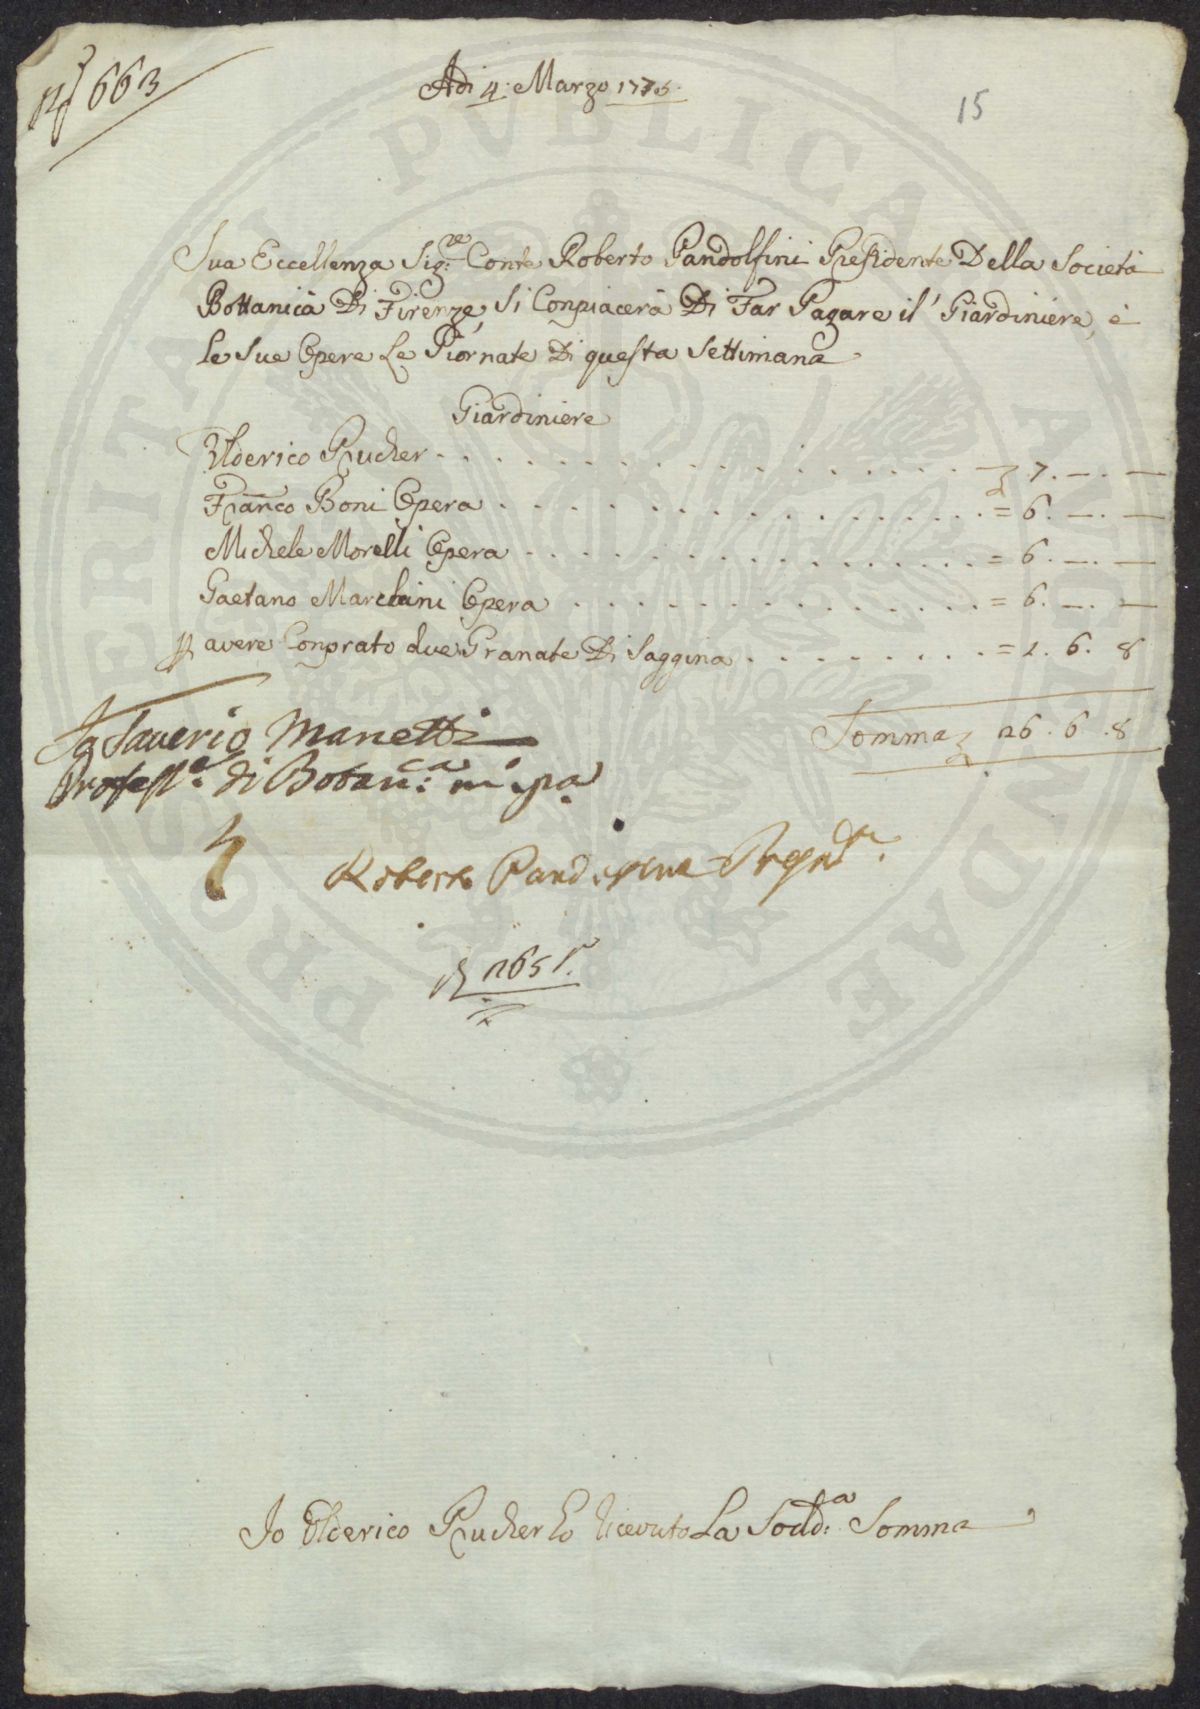 663
Adi 4: Marzo 1775.
15
Sua Eccellenza Sig:re Conte Roberto Pandolfini Presidente Della Società
Bottanica Di Firenze Si Conpiacerà Di Far Pagare il Giardiniere, è
le Sue Opere Le Giornate Di questa Settimana
Giardiniere
Ulderico Prucher 7. —. —
Franco Boni Opera = 6. —. —
Michele Morelli Opera = 6. —. —
Gaetano Marchini Opera = 6. —. —
avere Conprato due Granate Di Saggina = 1. 6. 8
Somma 26. 6. 8
Io Saverio Manetti
Profess:e di Botan:ca m° pa
Roberto Pandolfini
Io Ulderico Prucher ho ricevuto La Sodd:a Somma
PRO PVBLICA